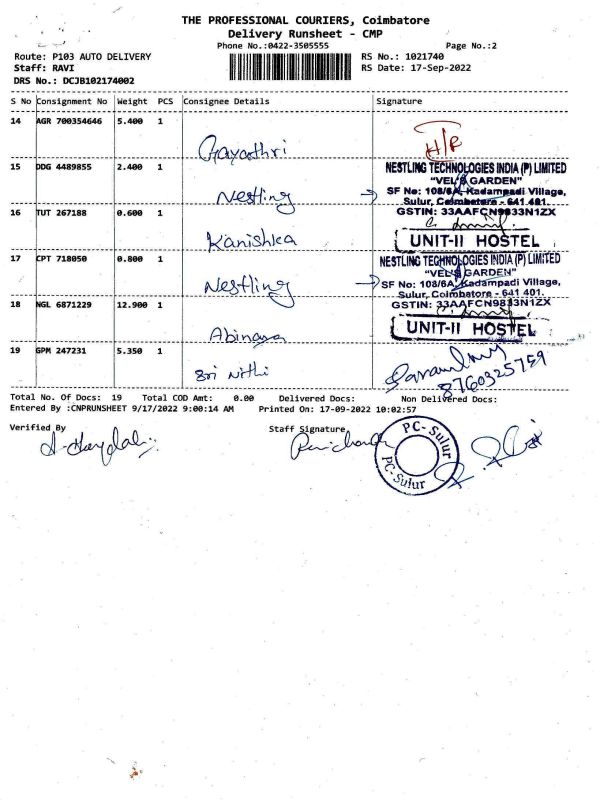 THE PROFESSIONAL COURIERS, Coimbatore
Delivery Runsheet - CMP
Phone No.:0422-3505555 Page No.:2
Route: P103 AUTO DELIVERY RS No.: 1021740
Staff: RAVI RS Date: 17-Sep-2022
DRS No.: DCJB102174002
S No Consignment No Weight PCS Consignee Details Signature
14 AGR 700354646 5.400 1
Gayathri H/R
15 DDG 4489855 2.400 1 NESTLING TECHNOLOGIES INDIA (P) LIMITED
"VEL'S GARDEN"
Nestling SF No: 108/6A, Kadampadi Village,
Sulur, Coimbatore - 641 401.
16 TUT 267188 0.600 1 GSTIN: 33AAFCN9833N1ZX
Kanishka UNIT-II HOSTEL
17 CPT 718050 0.800 1 NESTLING TECHNOLOGIES INDIA (P) LIMITED
"VEL'S GARDEN"
Nestling SF No: 108/6A, Kadampadi Village,
Sulur, Coimbatore - 641 401.
18 NGL 6871229 12.900 1 GSTIN: 33AAFCN9833N1ZX
Abinaya UNIT-II HOSTEL
19 GPM 247231 5.350 1
Sri Nithi 8760325759
Total No. Of Docs: 19 Total COD Amt: 0.00 Delivered Docs: Non Delivered Docs:
Entered By :CNPRUNSHEET 9/17/2022 9:00:14 AM Printed On: 17-09-2022 10:02:57
Verified By Staff Signature
PC-Sulur
PC-Sulur